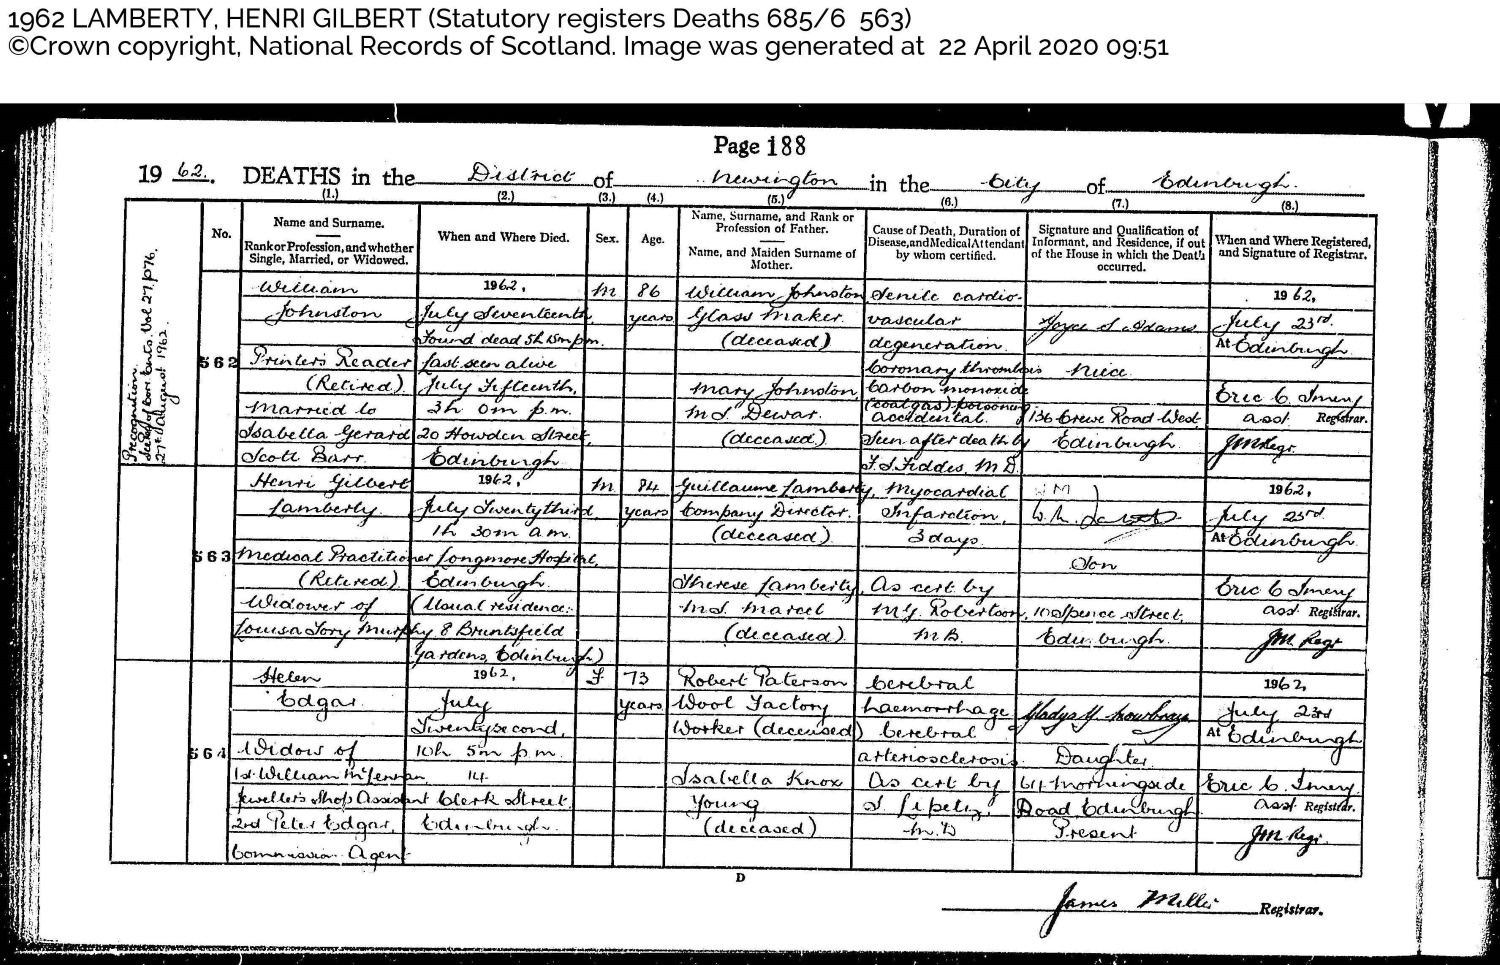 1962 LAMBERTY, HENRI GILBERT (Statutory registers Deaths 685/6 563)
©Crown copyright, National Records of Scotland. Image was generated at 22 April 2020 09:51
Page 188
1962. DEATHS in the District of Newington in the City of Edinburgh.
(1.) (2.) (3.) (4.) (5.) (6.) (7.) (8.)
No.
Name and Surname.
Rank or Profession, and whether
Single, Married, or Widowed.
When and Where Died.
Sex.
Age.
Name, Surname, and Rank or
Profession of Father.
Name, and Maiden Surname of
Mother.
Cause of Death, Duration of
Disease, and Medical Attendant
by whom certified.
Signature and Qualification of
Informant, and Residence, if out
of the House in which the Death
occurred.
When and Where Registered,
and Signature of Registrar.
Precognition.
Vol 27, p76.
27th August 1962.
562
William
Johnston
Printer's Reader
(Retired)
Married to
Isabella Gerard
Scott Barr.
1962,
July Seventeenth,
Found dead 5h 15m p.m.
Last seen alive
July Fifteenth,
3h 0m p.m.
20 Howden Street,
Edinburgh
M
86
years
William Johnston
Glass Maker.
(deceased)
Mary Johnston
M.S. Dewar.
(deceased)
Senile cardio-
vascular
degeneration.
Coronary thrombosis
Carbon monoxide
(coal gas) poisoning
accidental.
Seen after death by
F.S. Fiddes, M.D.
Joyce S. Adams
Niece
136 Crewe Road West
Edinburgh.
1962,
July 23rd.
At Edinburgh
Eric C. Imery
asst. Registrar.
JM Regr.
563
Henri Gilbert
Lamberty.
Medical Practitioner
(Retired)
Widower of
Louisa Tory Murphy
1962,
July Twentythird,
1h 30m a.m.
Longmore Hospital,
Edinburgh.
(Usual residence:-
8 Bruntsfield
Gardens, Edinburgh)
M
84
years
Guillaume Lamberty,
Company Director.
(deceased)
Therese Lamberty,
M.S. Marcel
(deceased)
Myocardial
Infarction,
3 days.
As cert by
M.G. Robertson,
M.B.
Son
10 Spence Street,
Edinburgh.
1962,
July 23rd.
At Edinburgh
Eric C Imery
asst Registrar.
JM Regr
564
Helen
Edgar.
Widow of
1st. William McLennan
Jeweller's Shop Assistant
2nd Peter Edgar,
Commission Agent
1962,
July
Twentysecond,
10h 5m p.m.
14
Clerk Street
Edinburgh.
F
73
years
Robert Paterson
Wool Factory
Worker (deceased)
Isabella Knox
Young
(deceased)
Cerebral
haemorrhage
Cerebral
arteriosclerosis.
As cert by
S. Lipetz,
M.D
Gladys Y. Mowbray
Daughter
611 Morningside
Road Edinburgh
Present
1962,
July 23rd
At Edinburgh
Eric C. Imery.
asst Registrar.
JM Regr.
D
James Miller Registrar.